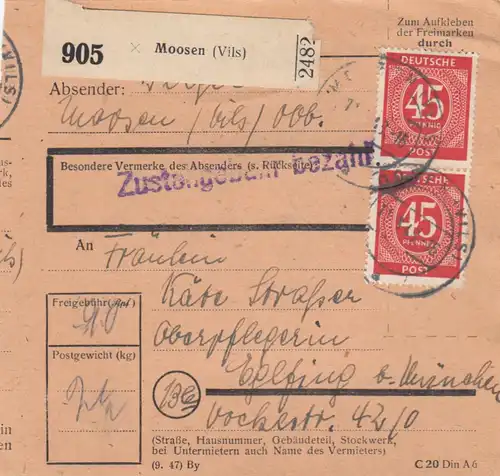 Zum Aufkleben
der Freimarken
durch
905 × Moosen (Vils)
2482
Absender:
Moosen / Vils / Obb.
DEUTSCHE
45
PFENNIG
POST
Besondere Vermerke des Absenders (s. Rückseite)
Zustellgebühr bezahlt
DEUTSCHE
45
PFENNIG
POST
An Fräulein
Käte Straßer
Oberpflegerin
Freigebühr
90
Postgewicht (kg)
Eglfing b. München
Vockestr. 42/0
(Straße, Hausnummer, Gebäudeteil, Stockwerk,
bei Untermietern auch Name des Vermieters)
(9. 47) By
C 20 Din A 6